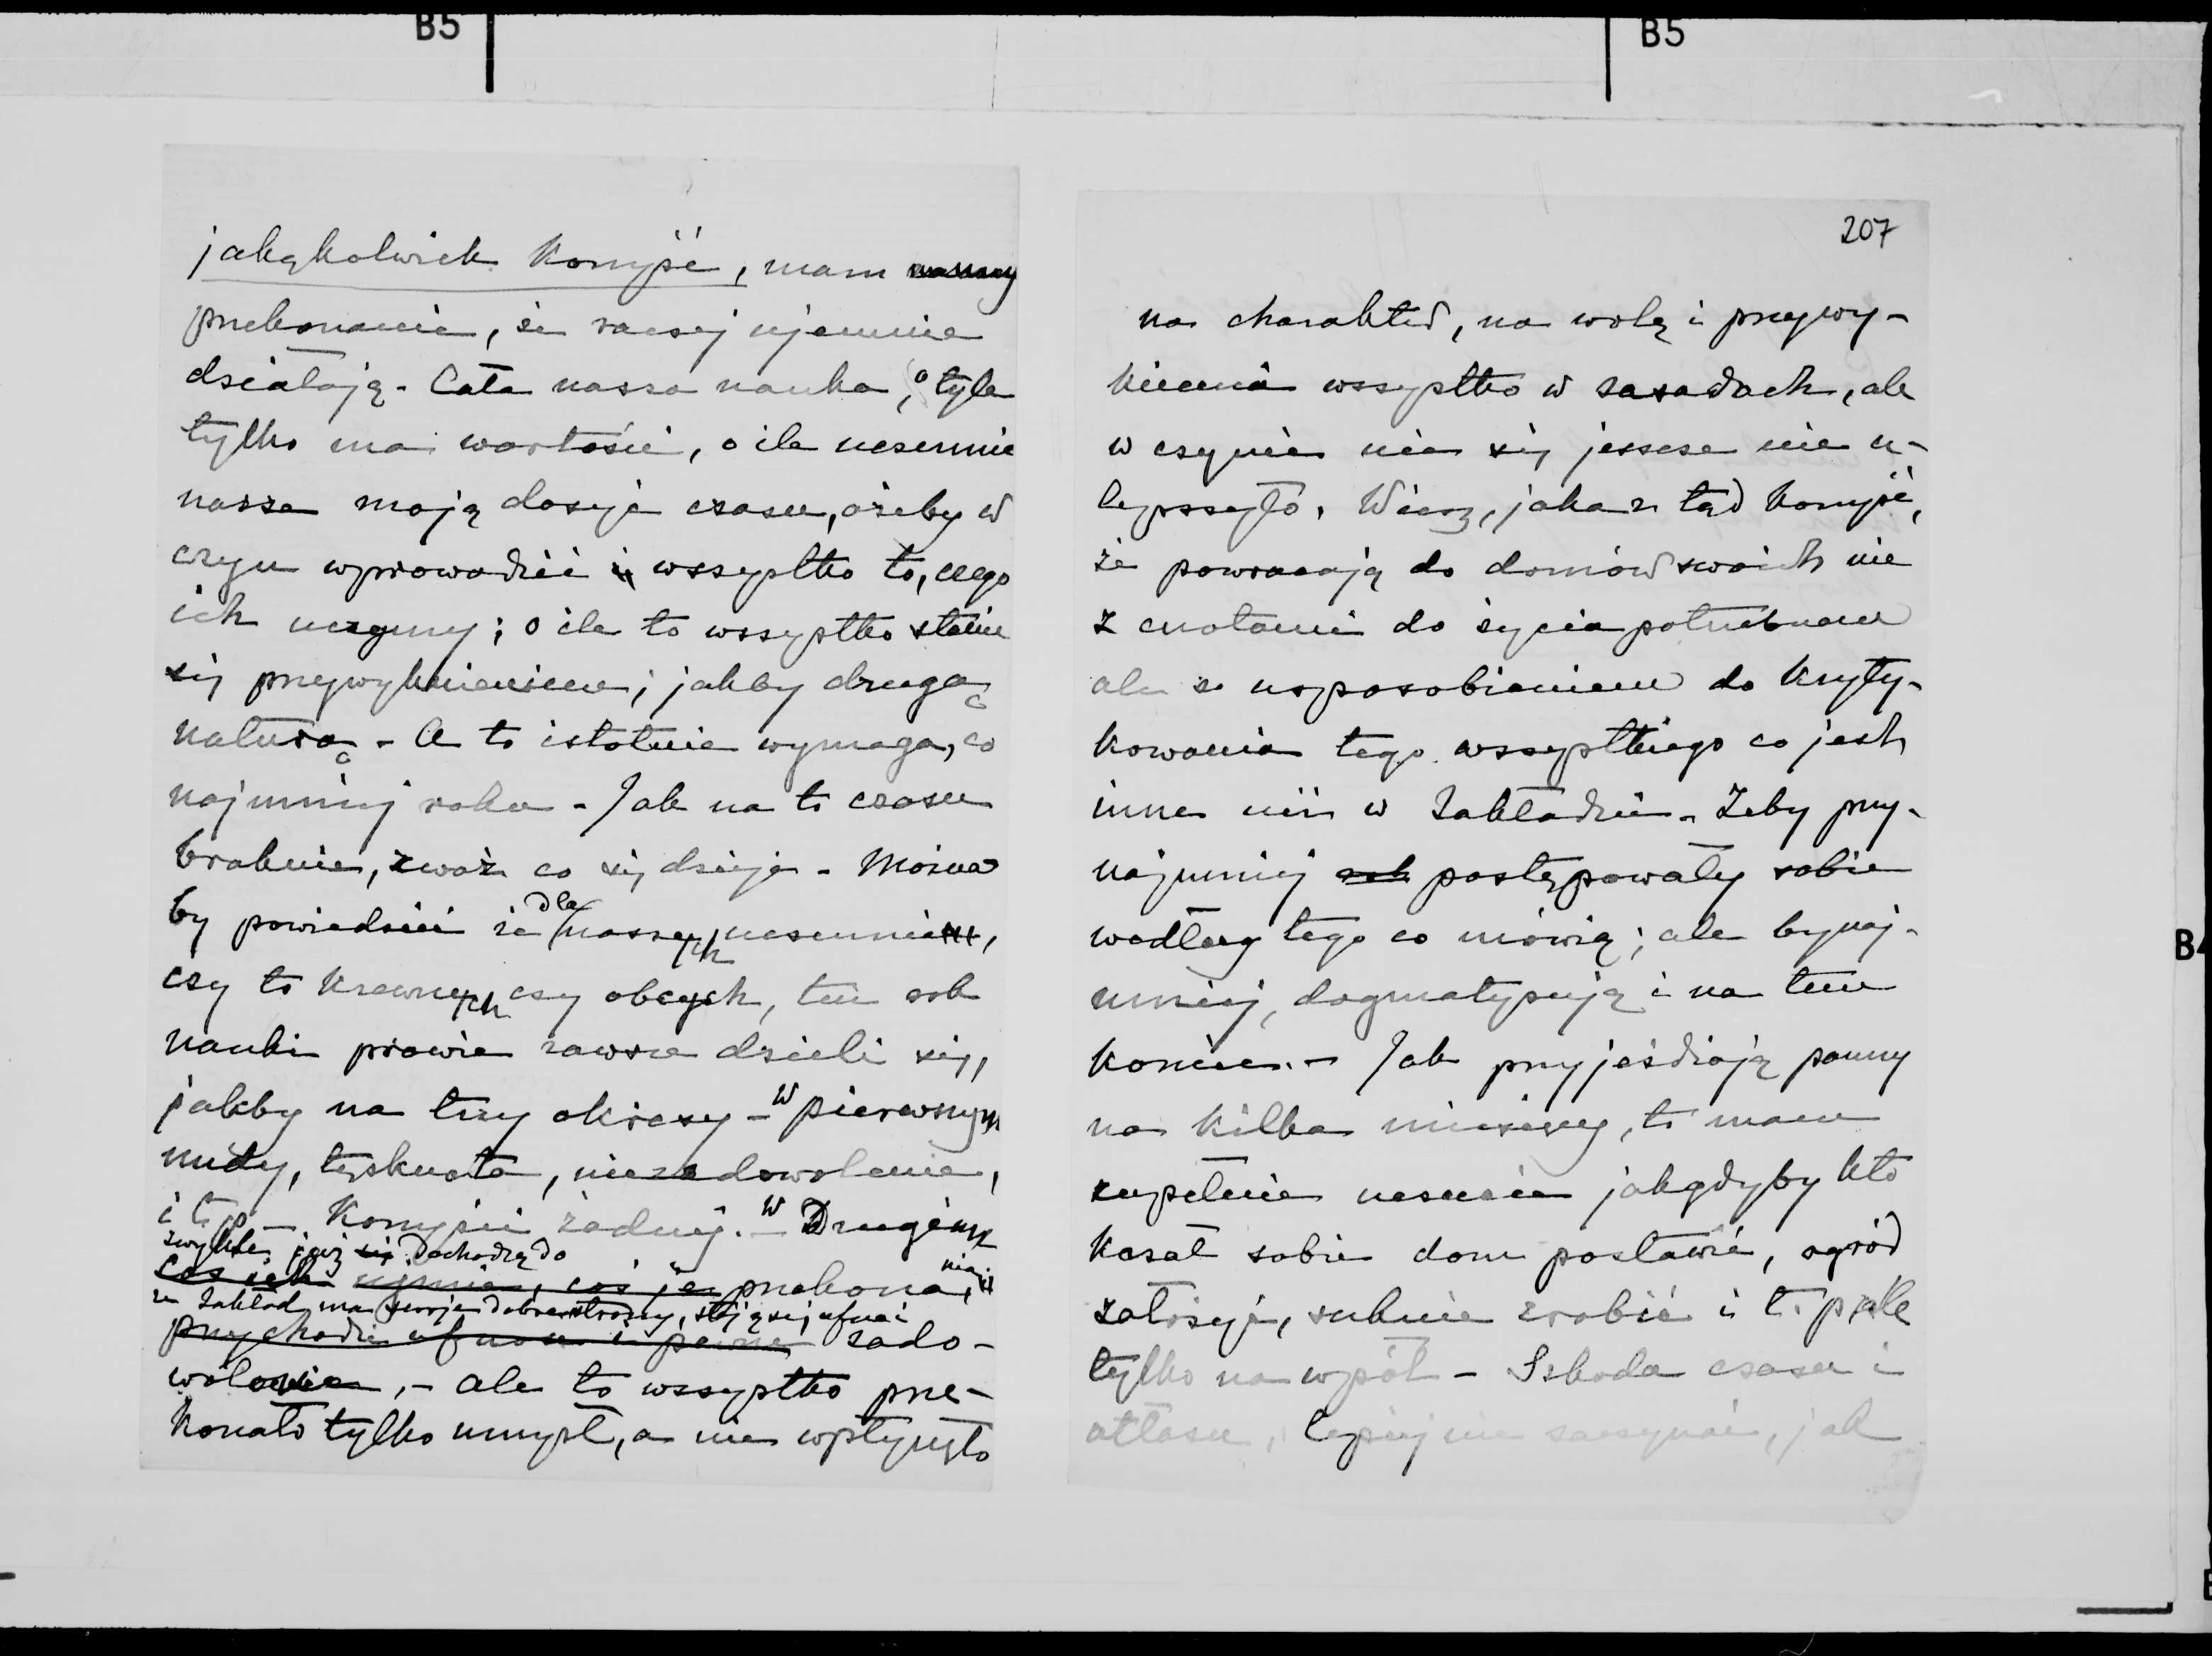 B5
B5
jakąkolwiek korzyść, mam
przekonanie, że raczej ujemnie
działają. Cała nasza nauka, o tyle
tylko ma wartości, o ile uczennice
nasze mają dosyć czasu, ażeby w
czyn wprowadzić wszystko to, czego
ich uczymy; o ile to wszystko stanie
się przywyknieniem; jakby drugą
naturą - A to istotnie wymaga, co
najmniej roku - Jak na to czasu
braknie, zważ co się dzieje - Można
by powiedzieć że dla naszych uczennic,
czy to krewnych czy obcych, ten rok
nauki prawie zawsze dzieli się,
jakby na trzy okresy - W pierwszym
nudy, tęsknota, niezadowolenie,
i t. p. - Korzyści żadnej. - W Drugim
zwykle już się dochodzą do
coś ich ujmie, coś je przekona, nia, iż
że Zakład ma swoje dobre strony, stają się ufne i
przychodzi ufność i pewne zado-
wolenie, - ale to wszystko prze-
konało tylko umysł, a nie wpłynęło
207
na charakter, na wolę i przywy-
knienia wszystko w zasadach, ale
w czynie nic się jeszcze nie u-
lepszyło. Wiesz, jaka z tąd korzyść,
że powracają do domów swoich nie
z cnotami do życia potrzebnemi
ale z usposobieniem do kryty-
kowania tego wszystkiego co jest
inne niż w Zakładzie. Żeby przy-
najmniej postępowały sobie
według tego co mówią; ale bynaj-
mniej, dogmatyzują i na tem
koniec. - Jak przyjeżdżają panny
na kilka miesięcy, to mam
zupełnie uczucie jakgdyby kto
kazał sobie dom postawić, ogród
założyć, suknie zrobić i t. p. ale
tylko na wpół - Szkoda czasu i
atłasu, lepiej nie zaczynać, jak